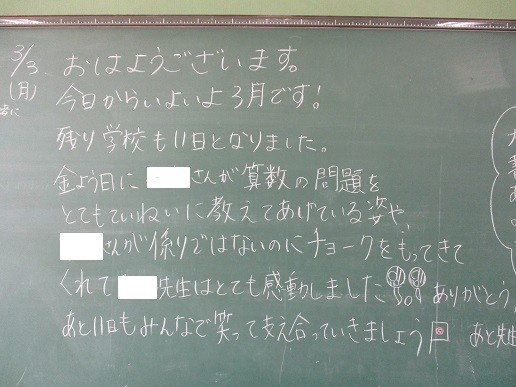 3/3
(月)
おはようございます。
今日からいよいよ3月です!
残り学校も11日となりました。
金よう日に さんが算数の問題を
とてもていねいに教えてあげている姿や、
さんが係りではないのにチョークをもってきて
くれて 先生はとても感動しました ありがとう
あと11日もみんなで笑って支え合っていきましょう
あと先生